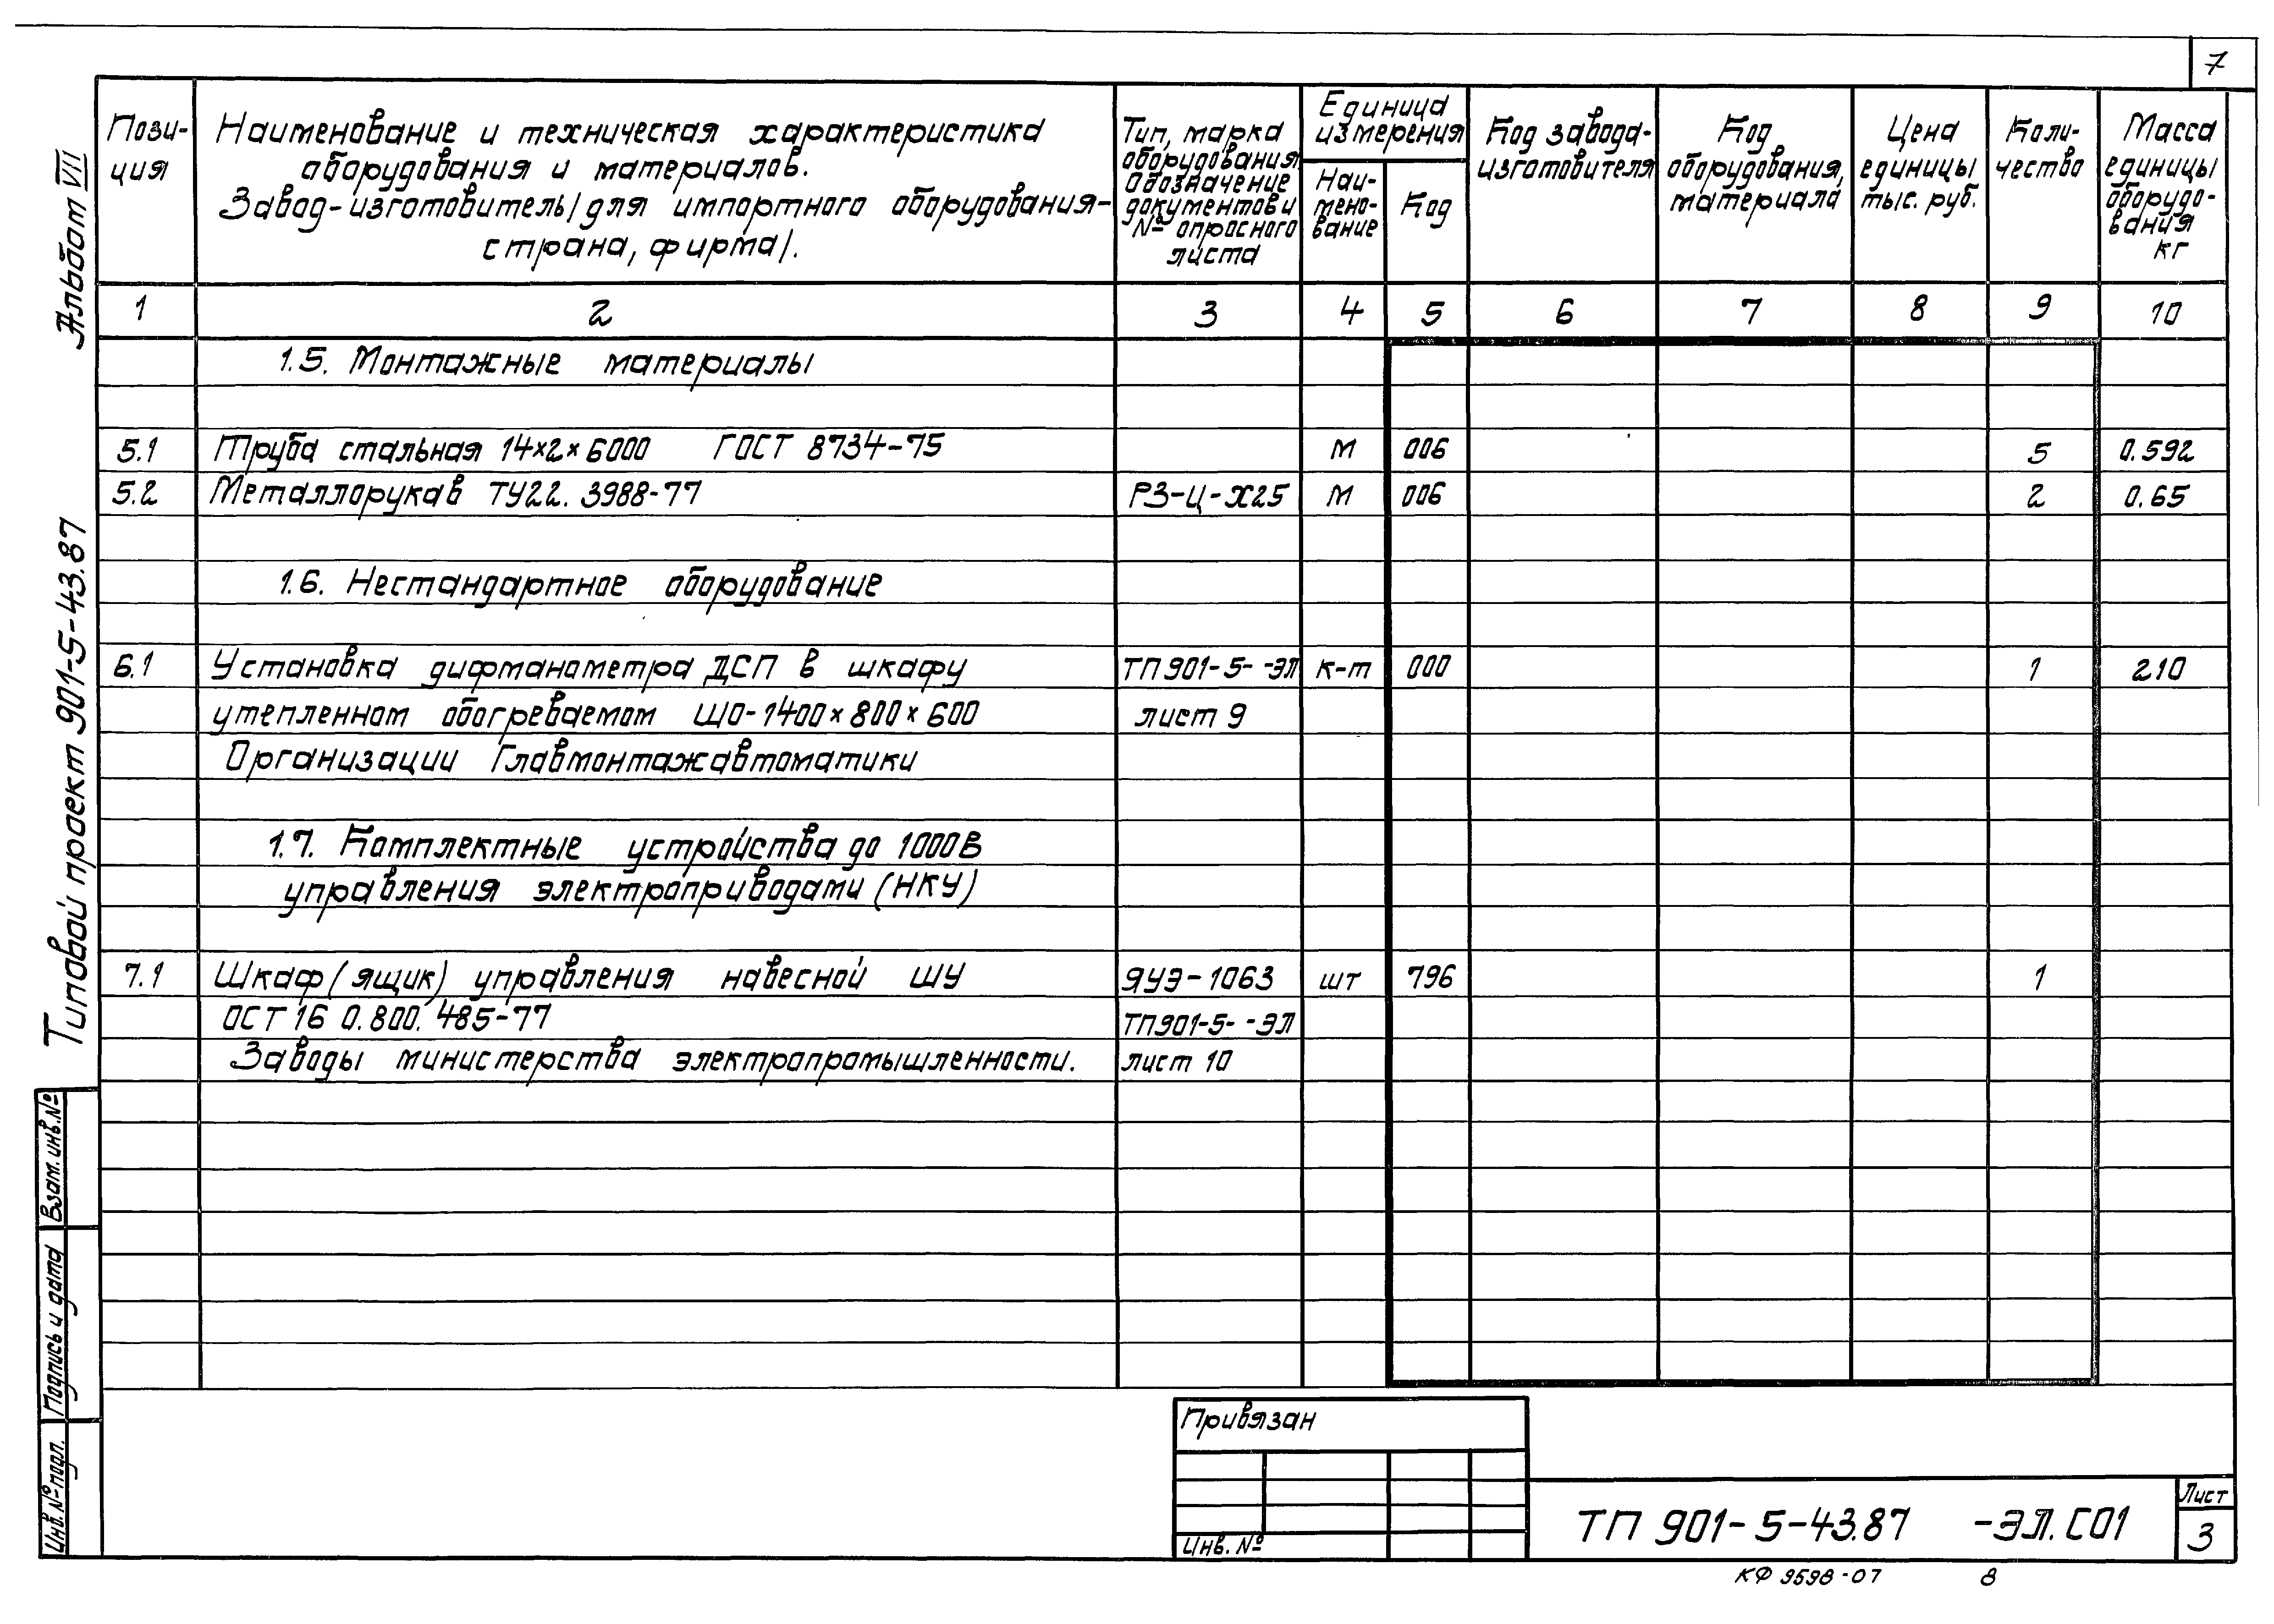 7
Альбом VII
Типовой проект 901-5-43.87
Пози-
ция
Наименование и техническая характеристика
оборудования и материалов.
Завод-изготовитель/для импортного оборудования-
страна, фирма/.
Тип, марка
оборудования.
Обозначение
документов и
№ опросного
листа
Единица
измерения
Наи-
мено-
вание
Код
Код завода-
изготовителя
Код
оборудования,
материала
Цена
единицы
тыс. руб.
Коли-
чество
Масса
единицы
оборудо-
вания
кг
1 2 3 4 5 6 7 8 9 10
1.5. Монтажные материалы
5.1 Труба стальная 14×2×6000 ГОСТ 8734-75 м 006 5 0.592
5.2 Металлорукав ТУ22. 3988-77 РЗ-Ц-Х25 м 006 2 0.65
1.6. Нестандартное оборудование
6.1 Установка дифманометра ДСП в шкафу ТП901-5- -ЭЛ к-т 000 1 210
утепленном обогреваемом ШО-1400×800×600 лист 9
Организации Главмонтажавтоматики
1.7. Комплектные устройства до 1000В
управления электроприводами (НКУ)
7.1 Шкаф (ящик) управления навесной ШУ ЯУЭ-1063 шт 796 1
ОСТ 16 0.800. 485-77 ТП901-5- -ЭЛ
Заводы министерства электропромышленности. лист 10
Взам. инв. №
Подпись и дата
Инв. № подл.
Привязан
Инв. №
ТП 901-5-43.87 -ЭЛ.СО1
Лист
3
КФ 9598-07 8